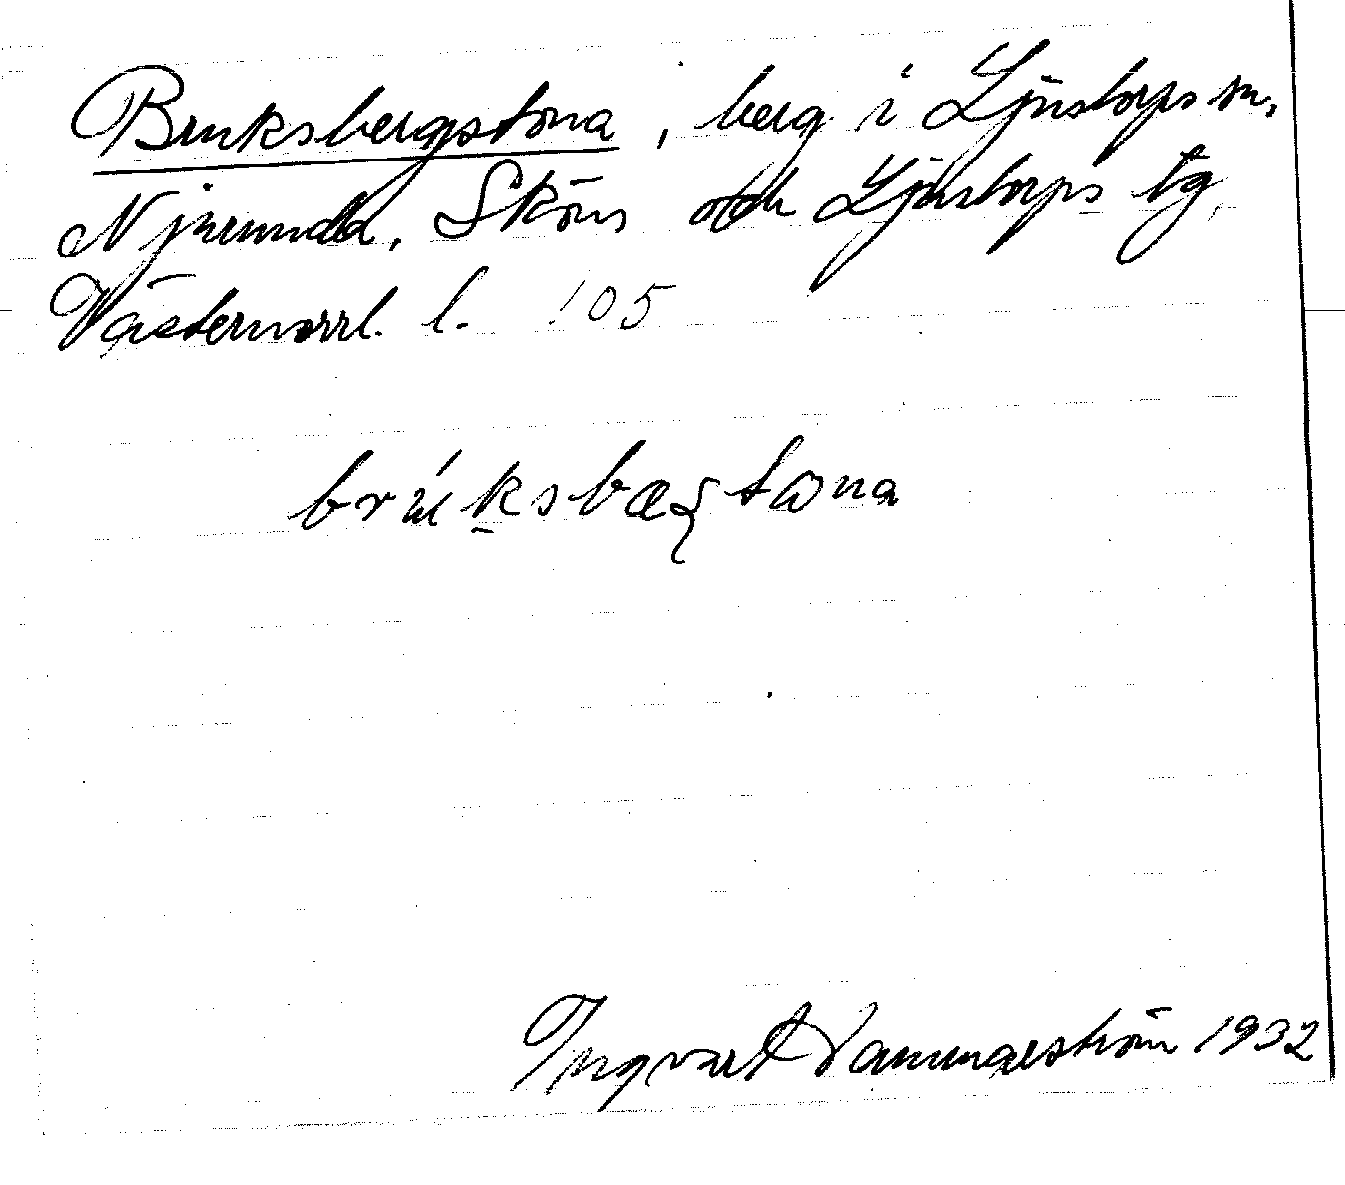 Bruksbergstöna, berg i Ljustorps sn,
Njurunda, Sköns och Ljustorps tg,
Västernorrl. l. 105
Ingvar Hammarström 1932